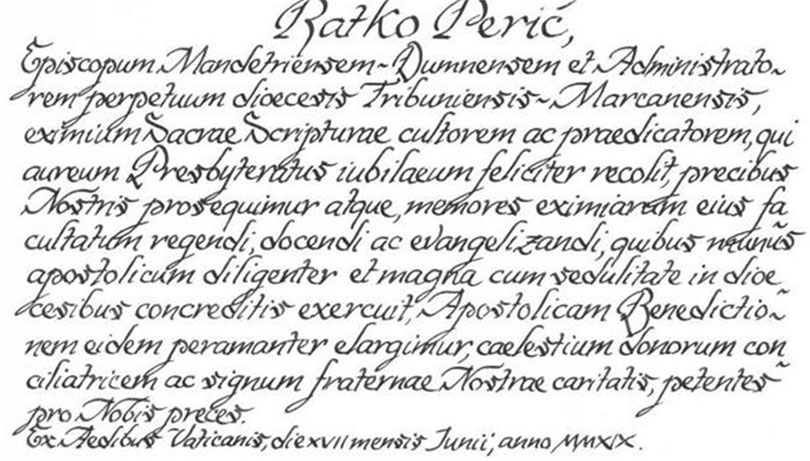 Ratko Perić,
Episcopum Mandetriensem-Dumnensem et Administrato-
rem perpetuum dioecesis Tribuniensis-Marcanensis,
eximium Sacrae Scripturae cultorem ac praedicatorem, qui
aureum Presbyteratus iubilaeum feliciter recolit, precibus
Nostris prosequimur atque, memores eximiarum eius fa
cultatum regendi, docendi ac evangelizandi, quibus munus
apostolicum diligenter et magna cum sedulitate in dioe
cesibus concreditis exercuit, Apostolicam Benedictio-
nem eidem peramanter elargimur, caelestium donorum con
ciliatricem ac signum fraternae Nostrae caritatis, petentes
pro Nobis preces.
Ex Aedibus Vaticanis, die XVII mensis Iunii, anno MMXIX.